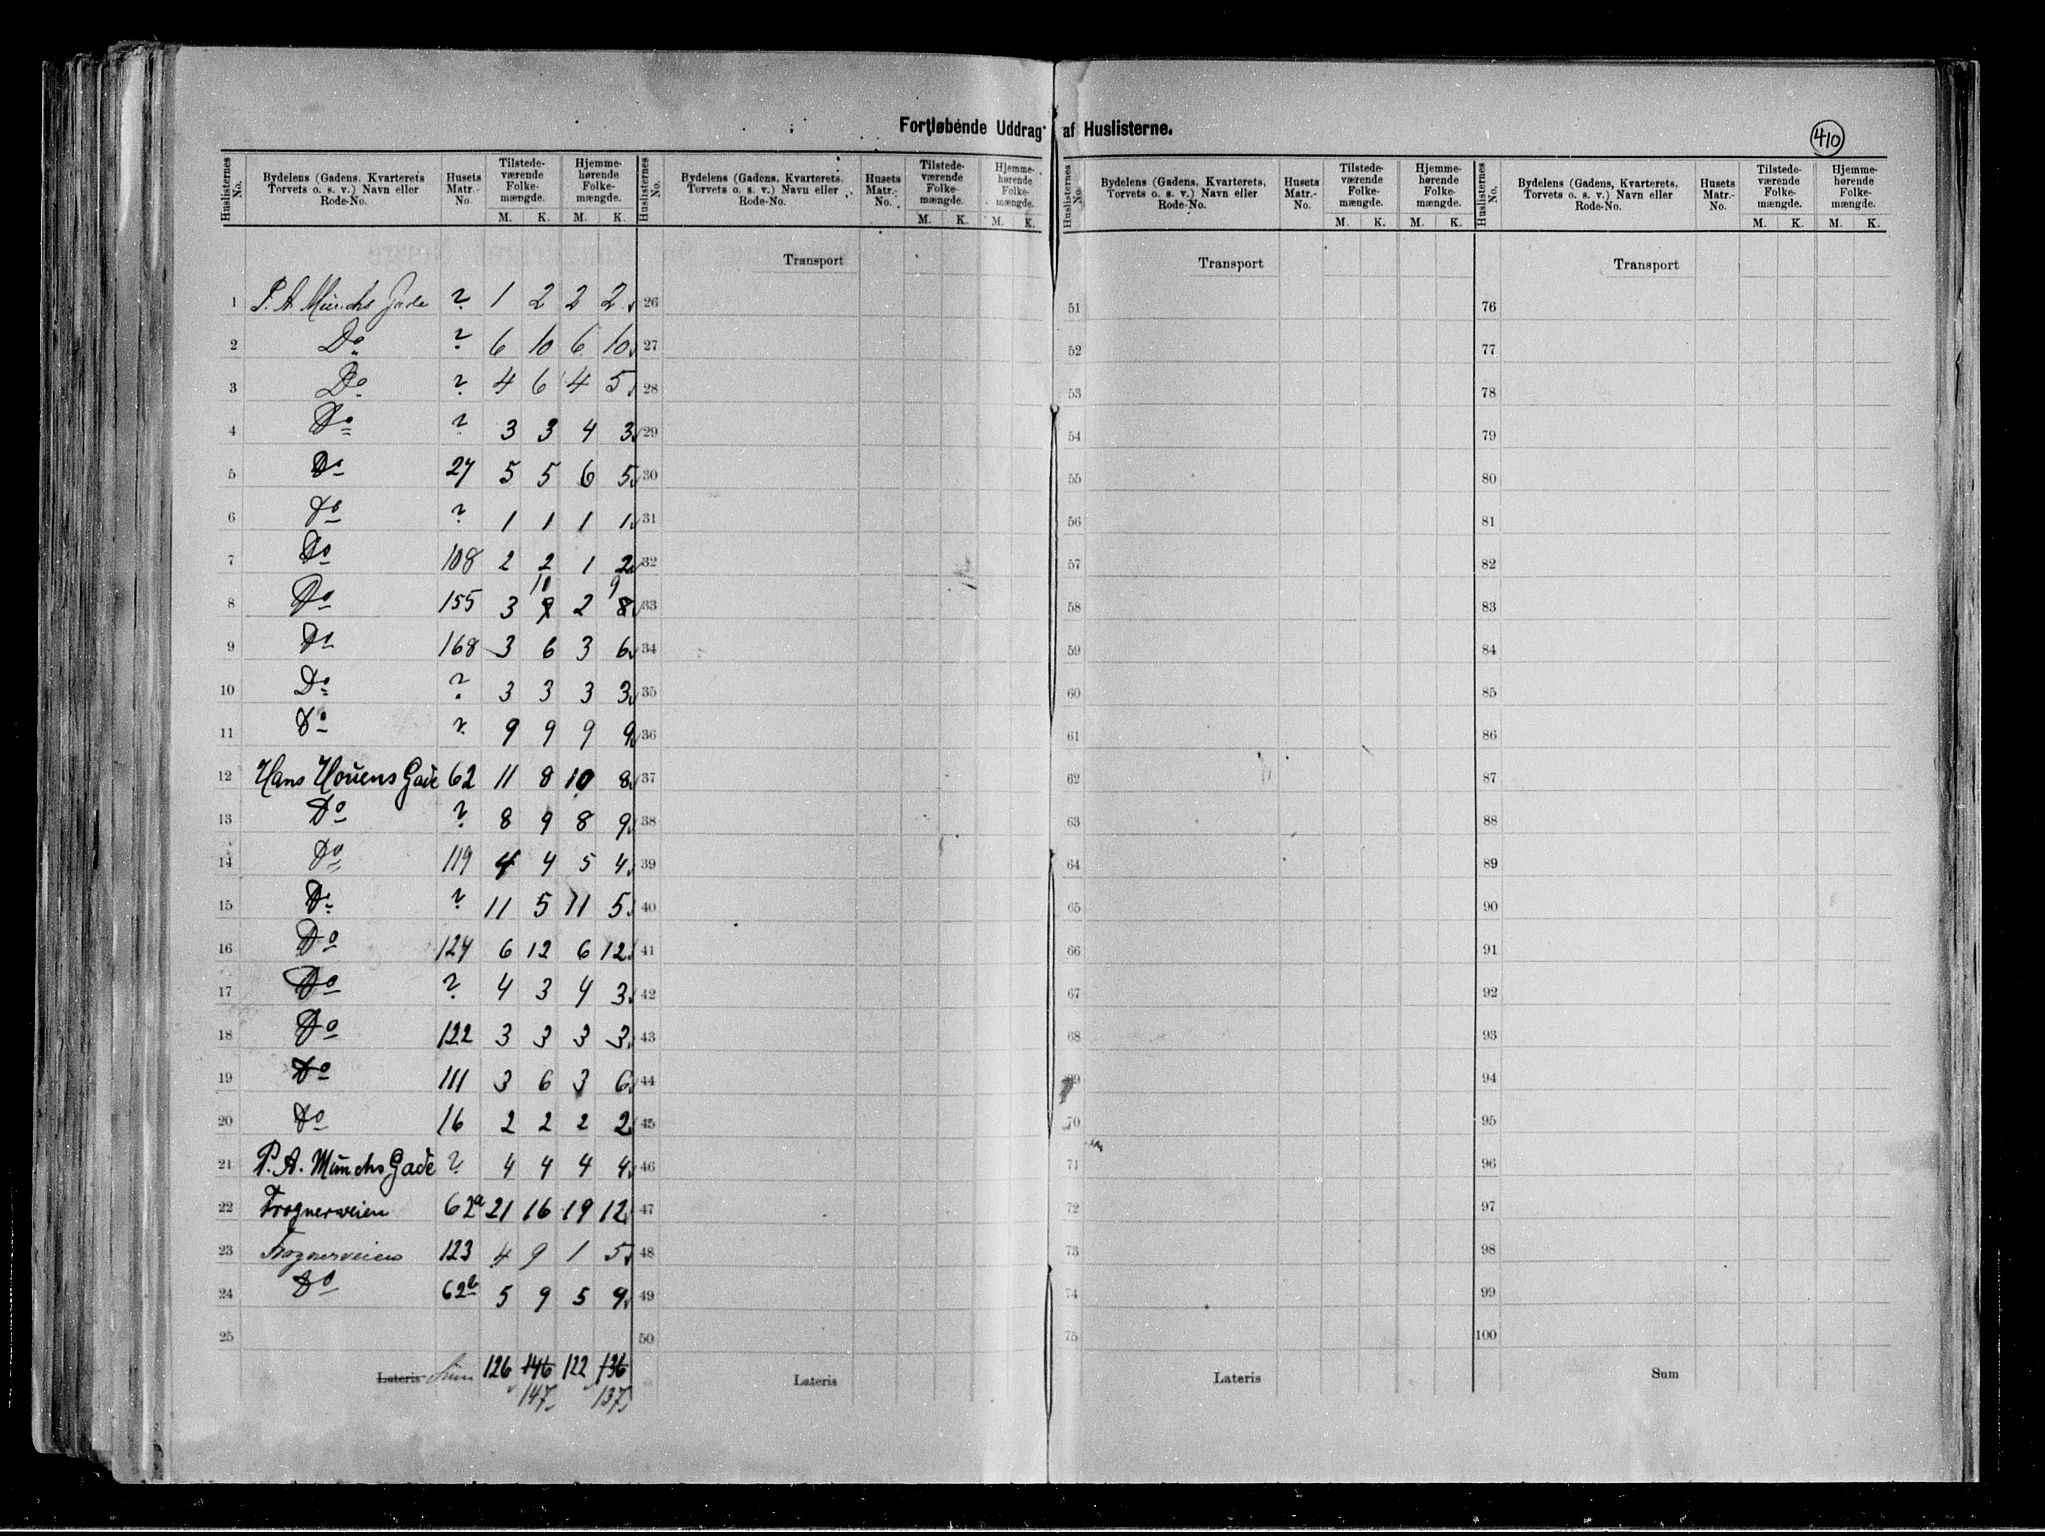 Fortløbende Uddrag af Huslisterne.
410
Huslisternes No. Bydelens (Gadens, Kvarterets Torvets o. s. v.) Navn eller Rode-No. Husets Matr.-No. Tilstede-værende Folke-mængde. M. K. Hjemme-hørende Folke-mængde. M. K.
Huslisternes No. Bydelens (Gadens, Kvarterets, Torvets o. s. v.) Navn eller Rode-No. Husets Matr.-No. Tilstede-værende Folke-mængde. M. K. Hjemme-hørende Folke-mængde. M. K.
Huslisternes No. Bydelens (Gadens, Kvarterets, Torvets o. s. v.) Navn eller Rode-No. Husets Matr.-No. Tilstede-værende Folke-mængde. M. K. Hjemme-hørende Folke-mængde. M. K.
Huslisternes No. Bydelens (Gadens, Kvarterets, Torvets o. s. v.) Navn eller Rode-No. Husets Matr.-No. Tilstede-værende Folke-mængde. M. K. Hjemme-hørende Folke-mængde. M. K.
Transport Transport Transport
1 P. A. Münchs Gade ? 1 2 2 2 26 51 76
2 Do ? 6 10 6 10 27 52 77
3 Do ? 4 6 4 5 28 53 78
4 Do ? 3 3 4 3 29 54 79
5 Do 27 5 5 6 5 30 55 80
6 Do ? 1 1 1 1 31 56 81
7 Do 108 2 2 1 2 32 57 82
10 9
8 Do 155 3 9 2 8 33 58 83
9 Do 168 3 6 3 6 34 59 84
10 Do ? 3 3 3 3 35 60 85
11 Do ? 9 9 9 9 36 61 86
12 Hans Houens Gade 62 11 8 10 8 37 62 87
13 Do ? 8 9 8 9 38 63 88
14 Do 119 4 4 5 4 39 64 89
15 Do ? 11 5 11 5 40 65 90
16 Do 124 6 12 6 12 41 66 91
17 Do ? 4 3 4 3 42 67 92
18 Do 122 3 3 3 3 43 68 93
19 Do 111 3 6 3 6 44 69 94
20 Do 16 2 2 2 2 45 70 95
21 P. A. Münchs Gade ? 4 4 4 4 46 71 96
22 Frognerveien 62a 21 16 19 12 47 72 97
23 Frognerveien 123 4 9 1 5 48 73 98
24 Do 62b 5 9 5 9 49 74 99
25 50 75 100
Lateris Sum 126 146 122 136 Lateris Lateris Sum
147 137